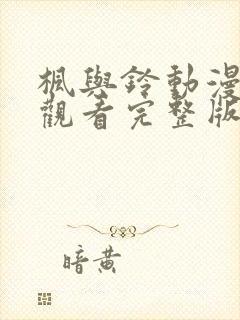 楓與鈴動漫
觀看完整版
暗黄